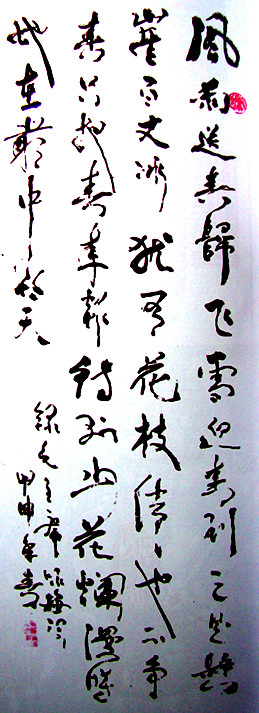 風雨送春歸飞雪迎春到已是懸
崖百丈冰犹有花枝俏俏也不争
春只把春来報待到山花爛漫時
她在叢中笑
録毛主席咏梅词
甲申年春